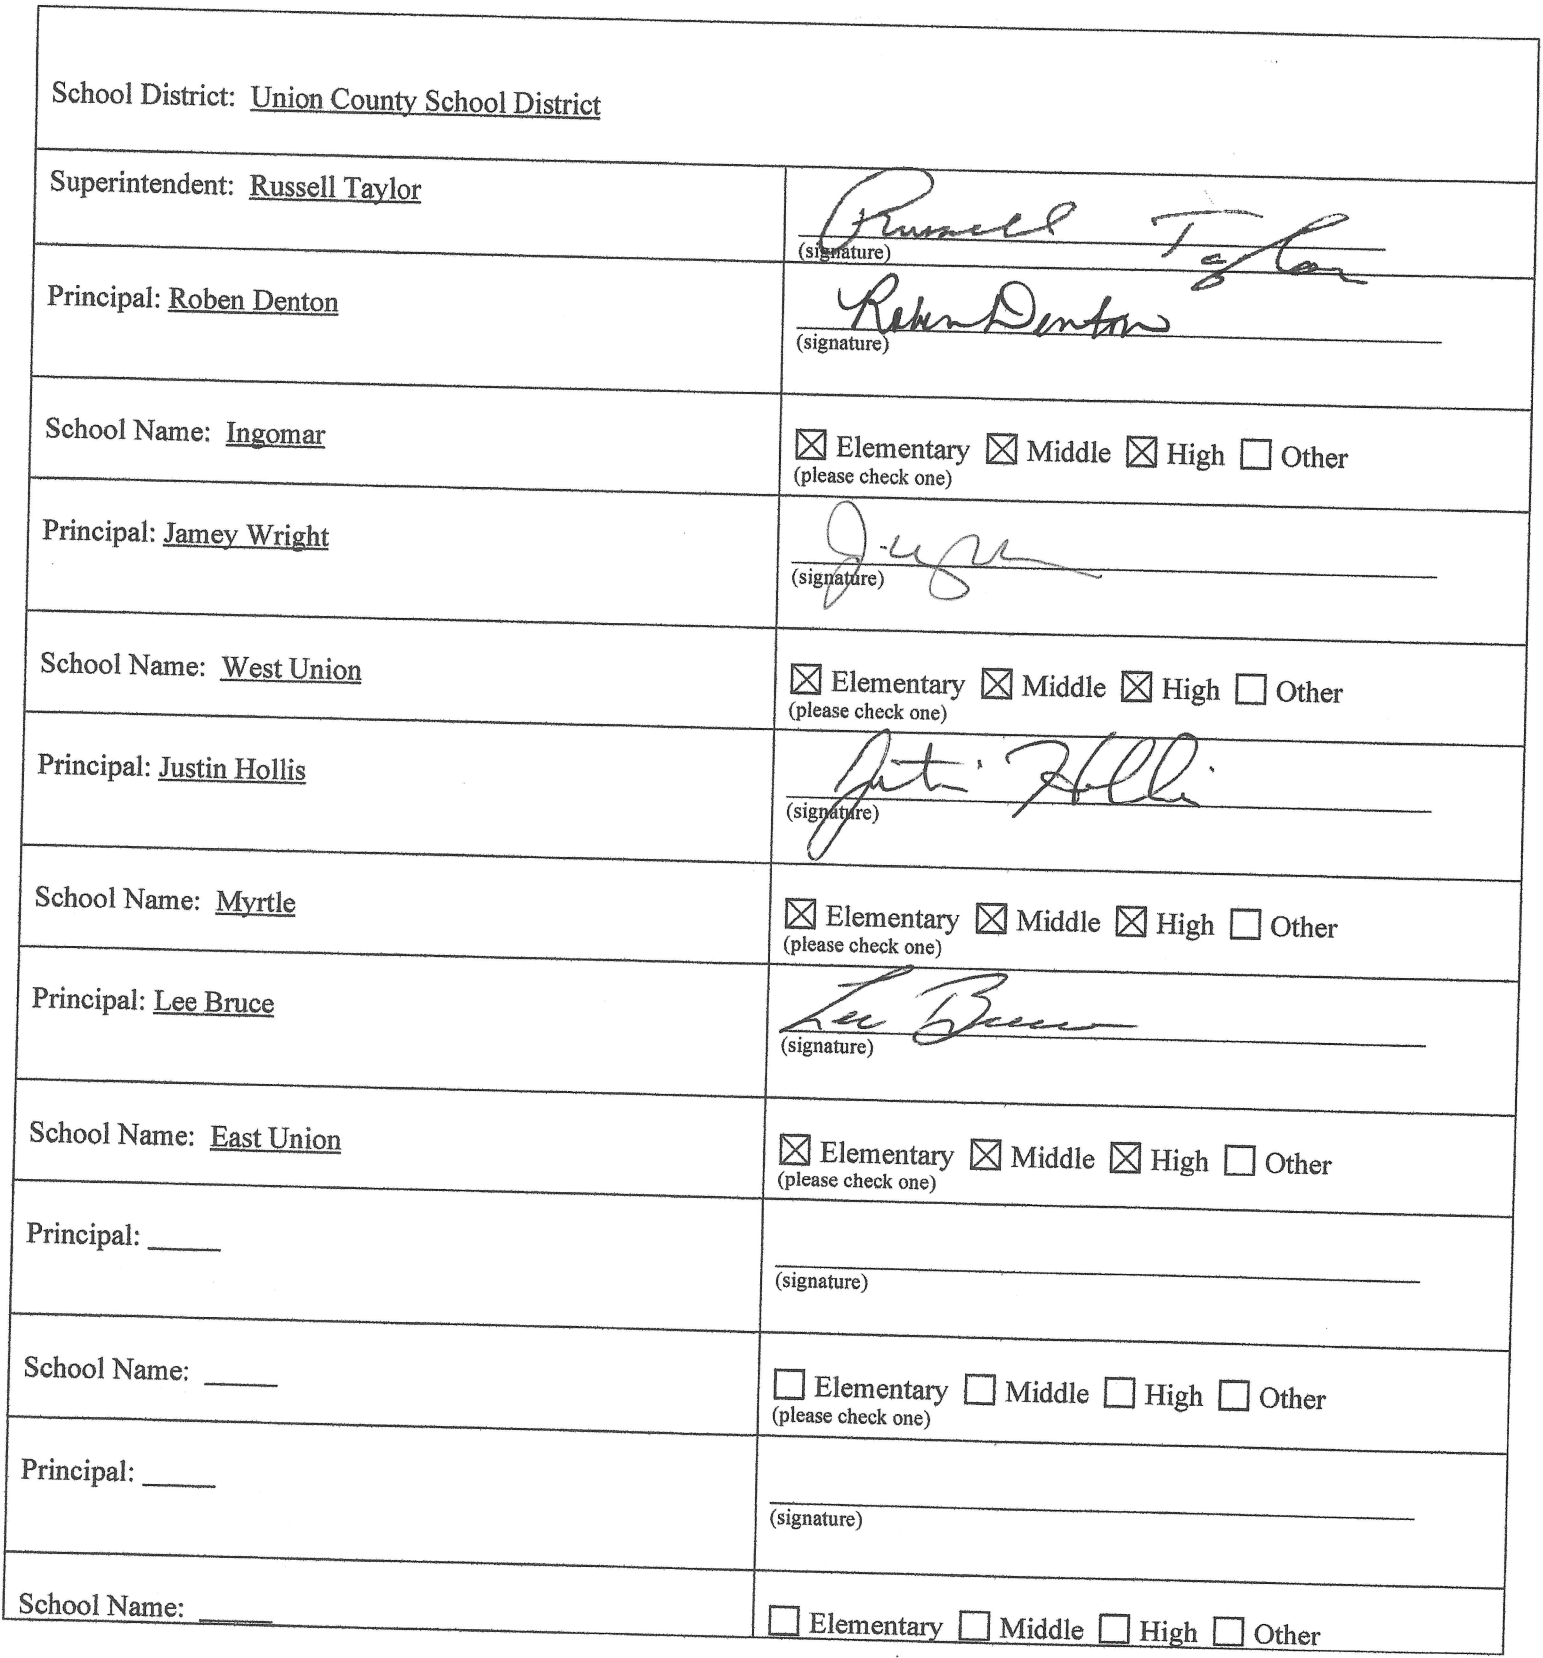 School District: Union County School District
Superintendent: Russell Taylor
Russell Taylor
(signature)
Principal: Roben Denton
Roben Denton
(signature)
School Name: Ingomar
☒ Elementary ☒ Middle ☒ High ☐ Other
(please check one)
Principal: Jamey Wright
(signature)
School Name: West Union
☒ Elementary ☒ Middle ☒ High ☐ Other
(please check one)
Principal: Justin Hollis
Justin Hollis
(signature)
School Name: Myrtle
☒ Elementary ☒ Middle ☒ High ☐ Other
(please check one)
Principal: Lee Bruce
Lee Bruce
(signature)
School Name: East Union
☒ Elementary ☒ Middle ☒ High ☐ Other
(please check one)
Principal: _____
(signature)
School Name: _____
☐ Elementary ☐ Middle ☐ High ☐ Other
(please check one)
Principal: _____
(signature)
School Name: _____
☐ Elementary ☐ Middle ☐ High ☐ Other